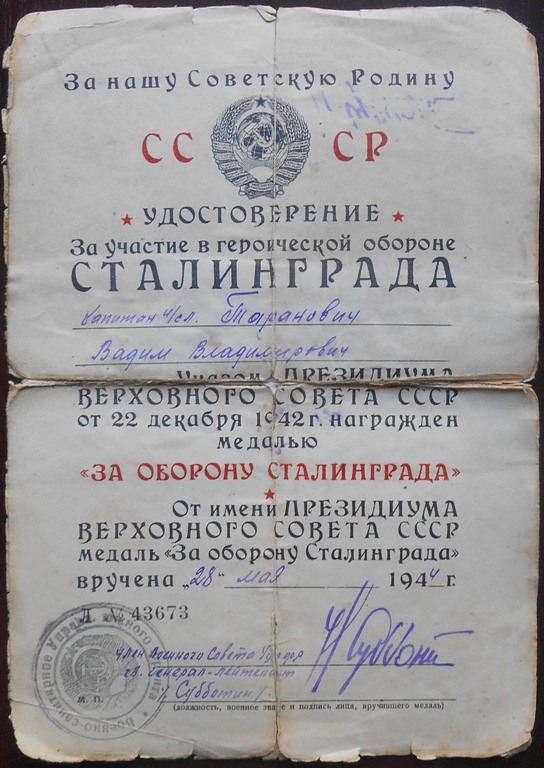 За нашу Советскую Родину
СССР
УДОСТОВЕРЕНИЕ
За участие в героической обороне
СТАЛИНГРАДА
капитан и/сл. Таранович
Вадим Владимирович
Указом ПРЕЗИДИУМА
ВЕРХОВНОГО СОВЕТА СССР
от 22 декабря 1942 г. награжден
медалью
«ЗА ОБОРОНУ СТАЛИНГРАДА»
От имени ПРЕЗИДИУМА
ВЕРХОВНОГО СОВЕТА СССР
медаль «За оборону Сталинграда»
вручена „28“ мая 1944 г.
Д № 43673
Член Военного Совета
гв. Генерал-лейтенант
Субботин
(должность, военное звание и подпись лица, вручившего медаль)
Военно-санитарное Управ. Южного
м. п.